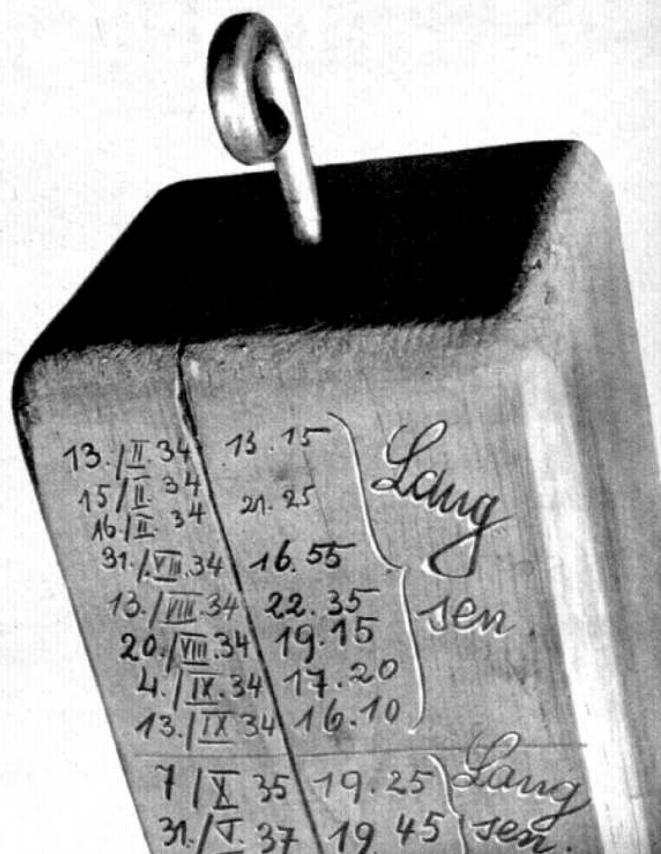 13./II.34 13.15
15/II.34 21.25
16./II.34
31./VIII.34 16.55
13./VIII.34 22.35
20./VIII.34 19.15
4./IX.34 17.20
13./IX 34 16.10
Lang
sen
7/X 35 19.25
31./V. 37 19 45
Lang
sen.